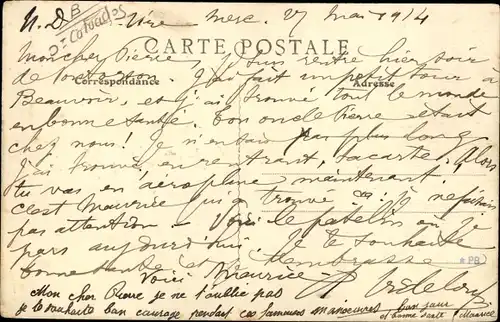 N. D. B
Dt Calvados
Vire Merc. 27 Mai 1914
CARTE POSTALE
Correspondance
Adresse
Mon cher Pierre, je suis rentré hier soir
de Pontorson. J'ai fait un petit tour à
Beauvoir, et j'ai trouvé tout le monde
en bonne santé. Ton oncle Pierre était
chez nous! Je n'en sais pas plus long
j'ai trouvé en rentrant, ta carte. Alors
tu vas en aéroplane maintenant.
c'est Maurice qui a trouvé ça. Je n'
pas attention — Voici le patelin où je
pars aujourd'hui. Je te souhaite
bonne santé et t'embrasse
Voici Maurice
Mon cher Pierre je ne t'oublie pas
je te souhaite bon courage pendant ces fameuses manoeuvres
et bonne santé Maurice
PB